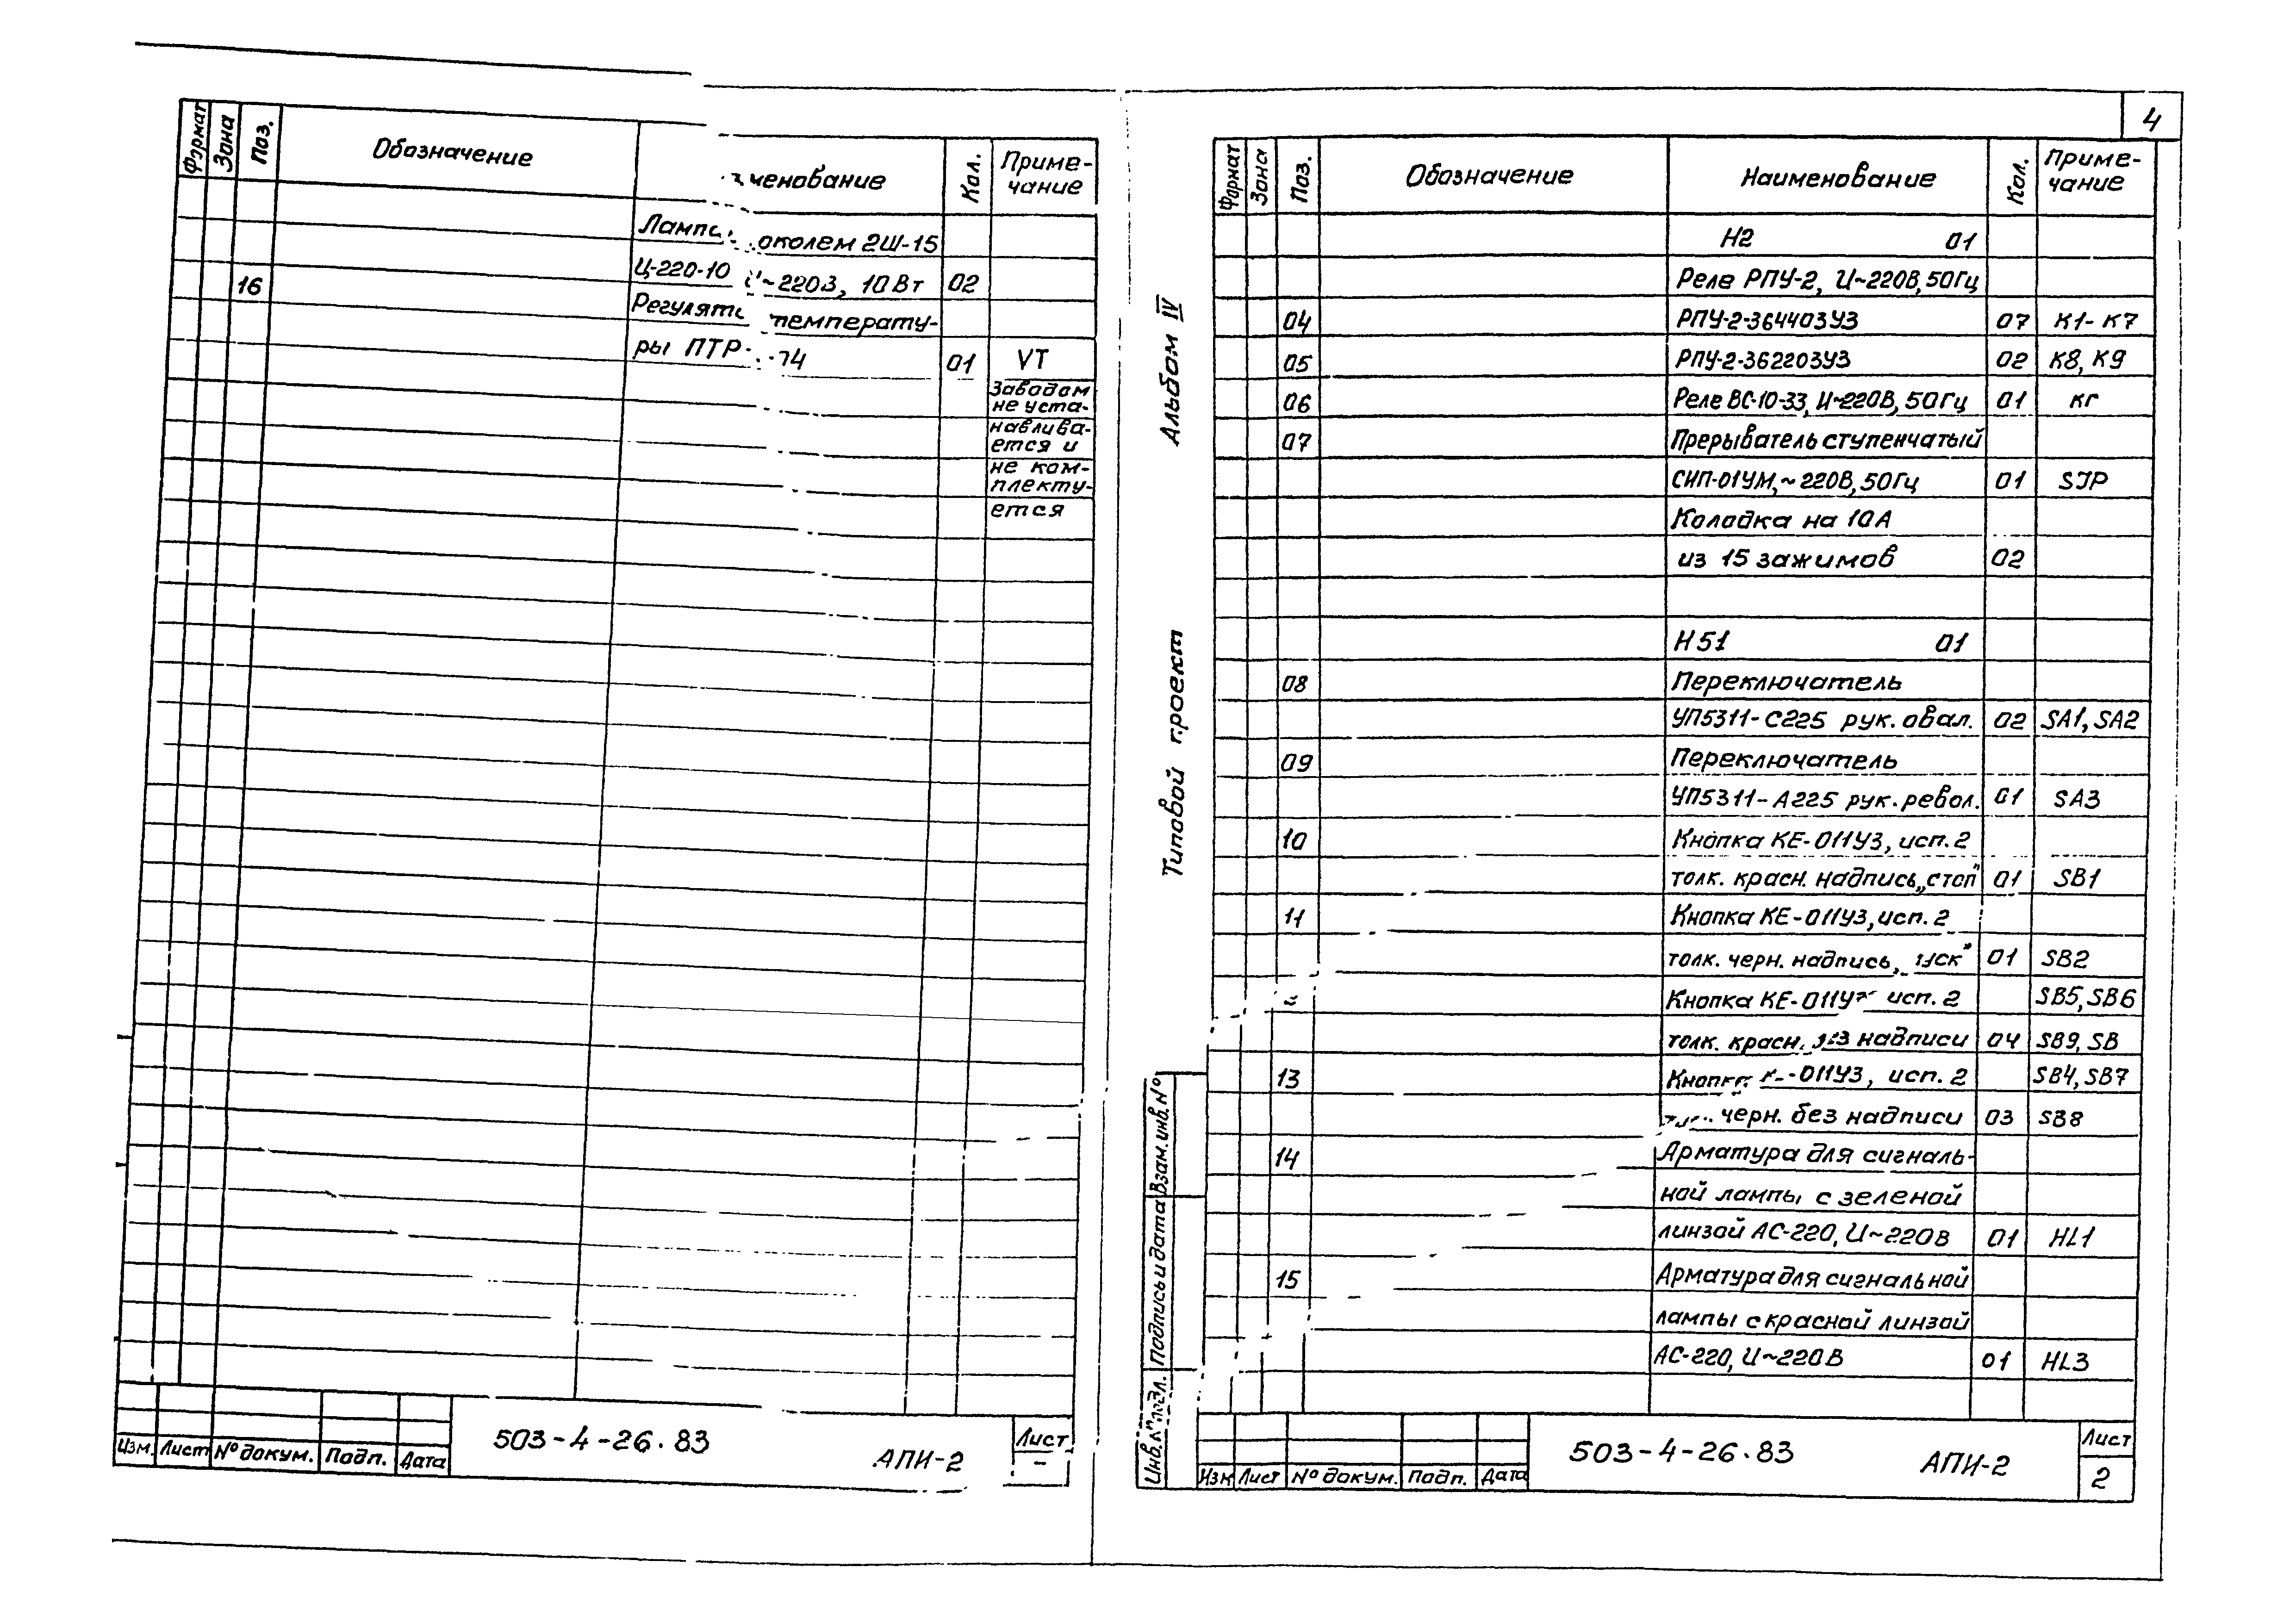 Формат Зона Поз. Обозначение Кол. Приме-
чание
околем 2Ш-15
Ц-220-10 ~220В, 10Вт 02
16 температу-
ры ПТР 01 VT
Заводом
не уста-
навлива-
ется и
не ком-
плекту-
ется
Изм. Лист № докум. Подп. Дата
503-4-26.83 АПИ-2 Лист
4
Альбом IV
Типовой проект
Взам. инв. №
Подпись и дата
Инв. № подл.
Формат Зона Поз. Обозначение Наименование Кол. Приме-
чание
Н2 01
Реле РПУ-2, U~220В, 50Гц
04 РПУ-2-364403У3 07 К1-К7
05 РПУ-2-362203У3 02 К8, К9
06 Реле ВС-10-33, U~220В, 50Гц 01 КГ
07 Прерыватель ступенчатый
СИП-01УМ, ~220В, 50Гц 01 SJP
Колодка на 10А
из 15 зажимов 02
Н51 01
08 Переключатель
УП5311-С225 рук. овал. 02 SA1, SA2
09 Переключатель
УП5311-А225 рук. револ. 01 SA3
10 Кнопка КЕ-011У3, исп. 2
толк. красн. надпись „стоп" 01 SB1
11 Кнопка КЕ-011У3, исп. 2
толк. черн. надпись 01 SB2
Кнопка КЕ-011У3 исп. 2 SB5, SB6
толк. красн. без надписи 04 SB9, SB
13 Кнопка КЕ-011У3, исп. 2 SB4, SB7
черн. без надписи 03 SB8
14 Арматура для сигналь-
ной лампы с зеленой
линзой АС-220, U~220В 01 HL1
15 Арматура для сигнальной
лампы с красной линзой
АС-220, U~220В 01 HL3
Изм Лист № докум. Подп. Дата
503-4-26.83 АПИ-2 Лист
2